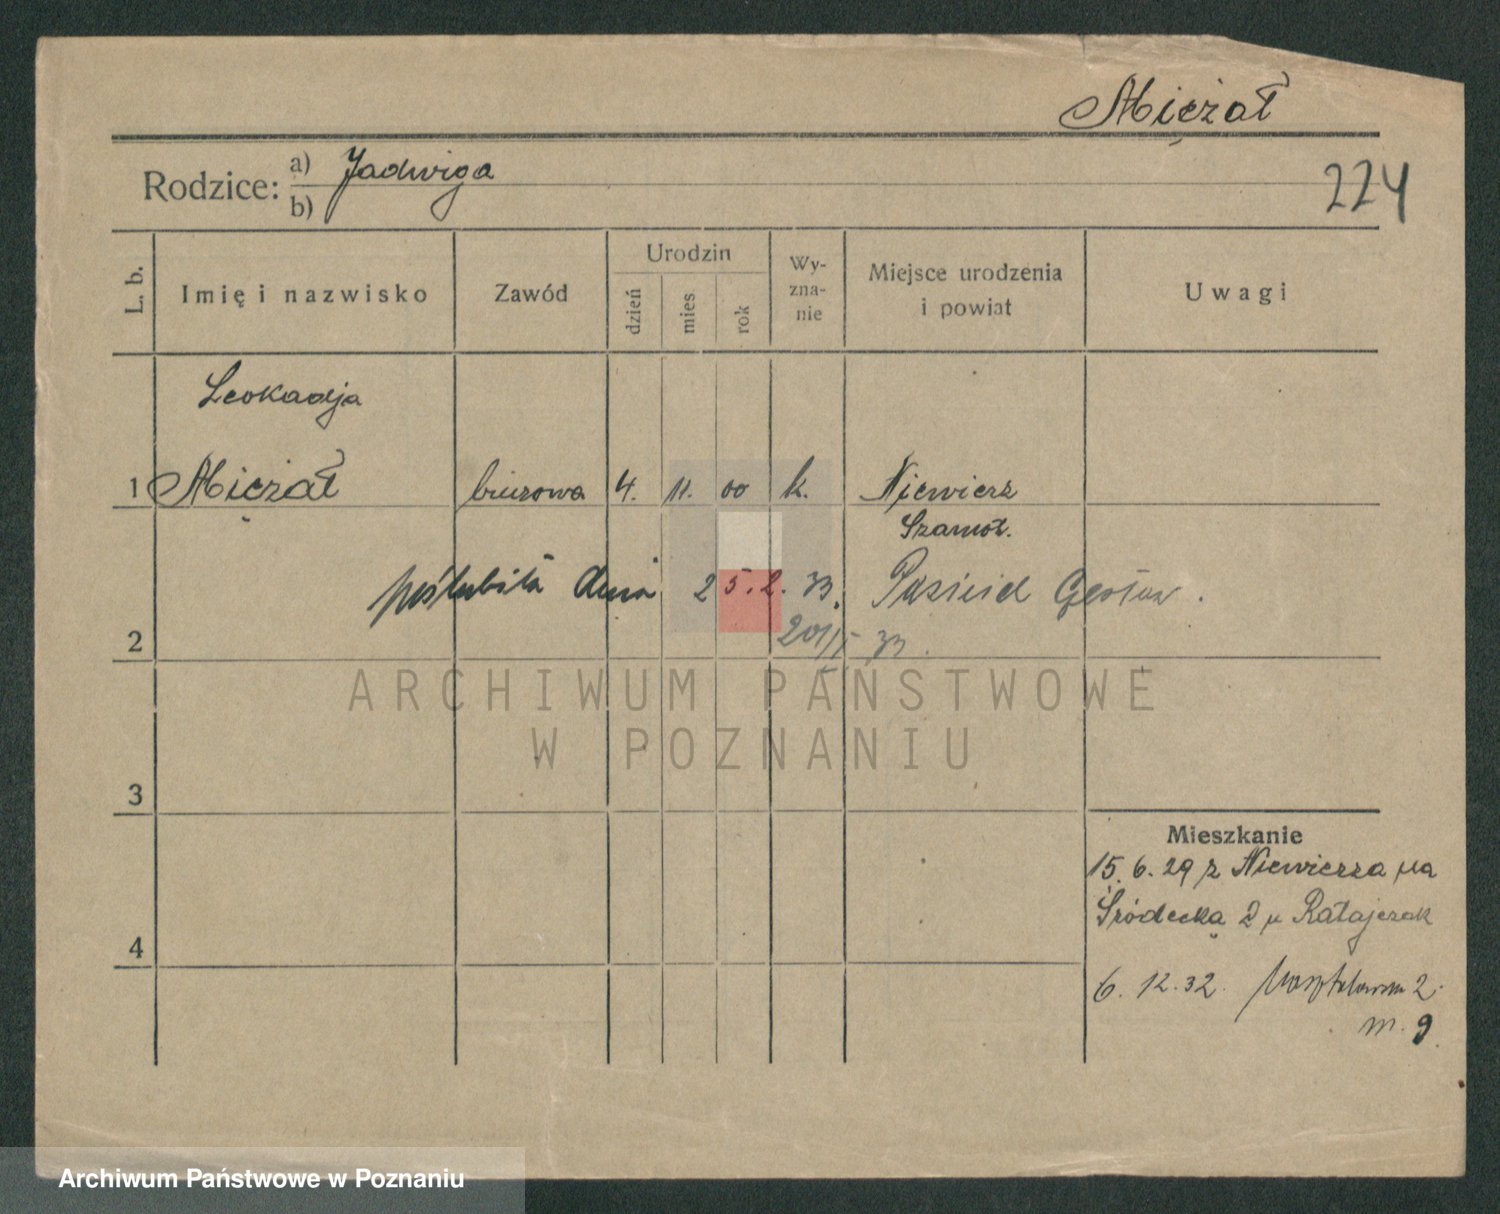 Mieżał
Rodzice: a) Jadwiga
b)
224
L. b.
Imię i nazwisko
Zawód
Urodzin
dzień
mies
rok
Wy-
zna-
nie
Miejsce urodzenia
i powiat
Uwagi
Leokadja
1 Mieżał biurowa 4. 11. 00 k. Niewierz
Szamot.
poślubiła dnia 25.2.33.
2
33.
ARCHIWUM PAŃSTWOWE
W POZNANIU
3
Mieszkanie
15. 6. 29 z Niewierza na
Śródecka 2 u Ratajczak
4
6. 12. 32. 2.
m. 9
Archiwum Państwowe w Poznaniu